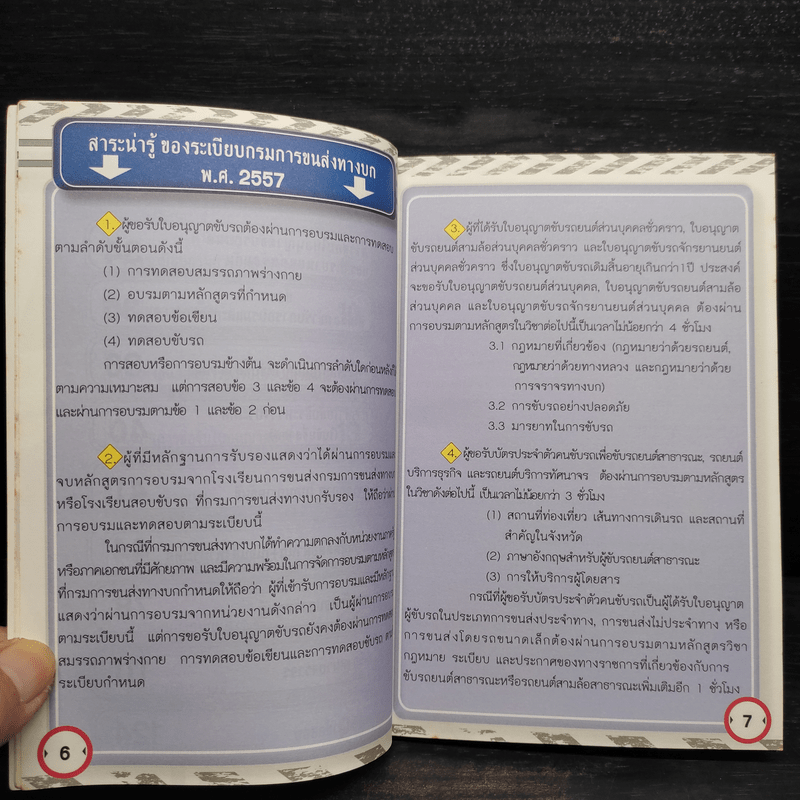 สาระน่ารู้ ของระเบียบกรมการขนส่งทางบก
พ.ศ. 2557
1. ผู้ขอรับใบอนุญาตขับรถต้องผ่านการอบรมและการทดสอบ
ตามลำดับขั้นตอนดังนี้
(1) การทดสอบสมรรถภาพร่างกาย
(2) อบรมตามหลักสูตรที่กำหนด
(3) ทดสอบข้อเขียน
(4) ทดสอบขับรถ
การสอบหรือการอบรมข้างต้น จะดำเนินการลำดับใดก่อนหลังก็ได้
ตามความเหมาะสม แต่การสอบข้อ 3 และข้อ 4 จะต้องผ่านการทดสอบ
และผ่านการอบรมตามข้อ 1 และข้อ 2 ก่อน
2. ผู้ที่มีหลักฐานการรับรองแสดงว่าได้ผ่านการอบรมและ
จบหลักสูตรการอบรมจากโรงเรียนการขนส่งกรมการขนส่งทางบก
หรือโรงเรียนสอบขับรถ ที่กรมการขนส่งทางบกรับรอง ให้ถือว่าผ่าน
การอบรมและทดสอบตามระเบียบนี้
ในกรณีที่กรมการขนส่งทางบกได้ทำความตกลงกับหน่วยงานภาครัฐ
หรือภาคเอกชนที่มีศักยภาพ และมีความพร้อมในการจัดการอบรมตามหลักสูตร
ที่กรมการขนส่งทางบกกำหนดให้ถือว่า ผู้ที่เข้ารับการอบรมและมีหลักฐาน
แสดงว่าผ่านการอบรมจากหน่วยงานดังกล่าว เป็นผู้ผ่านการอบรม
ตามระเบียบนี้ แต่การขอรับใบอนุญาตขับรถยังคงต้องผ่านการทดสอบ
สมรรถภาพร่างกาย การทดสอบข้อเขียนและการทดสอบขับรถ ตาม
ระเบียบกำหนด
6
3. ผู้ที่ได้รับใบอนุญาตขับรถยนต์ส่วนบุคคลชั่วคราว, ใบอนุญาต
ขับรถยนต์สามล้อส่วนบุคคลชั่วคราว และใบอนุญาตขับรถจักรยานยนต์
ส่วนบุคคลชั่วคราว ซึ่งใบอนุญาตขับรถเดิมสิ้นอายุเกินกว่า1ปี ประสงค์
จะขอรับใบอนุญาตขับรถยนต์ส่วนบุคคล, ใบอนุญาตขับรถยนต์สามล้อ
ส่วนบุคคล และใบอนุญาตขับรถจักรยานยนต์ส่วนบุคคล ต้องผ่าน
การอบรมตามหลักสูตรในวิชาต่อไปนี้เป็นเวลาไม่น้อยกว่า 4 ชั่วโมง
3.1 กฎหมายที่เกี่ยวข้อง (กฎหมายว่าด้วยรถยนต์,
กฎหมายว่าด้วยทางหลวง และกฎหมายว่าด้วย
การจราจรทางบก)
3.2 การขับรถอย่างปลอดภัย
3.3 มารยาทในการขับรถ
4. ผู้ขอรับบัตรประจำตัวคนขับรถเพื่อขับรถยนต์สาธารณะ, รถยนต์
บริการธุรกิจ และรถยนต์บริการทัศนาจร ต้องผ่านการอบรมตามหลักสูตร
ในวิชาดังต่อไปนี้ เป็นเวลาไม่น้อยกว่า 3 ชั่วโมง
(1) สถานที่ท่องเที่ยว เส้นทางการเดินรถ และสถานที่
สำคัญในจังหวัด
(2) ภาษาอังกฤษสำหรับผู้ขับรถยนต์สาธารณะ
(3) การให้บริการผู้โดยสาร
กรณีที่ผู้ขอรับบัตรประจำตัวคนขับรถเป็นผู้ได้รับใบอนุญาต
ผู้ขับรถในประเภทการขนส่งประจำทาง, การขนส่งไม่ประจำทาง หรือ
การขนส่งโดยรถขนาดเล็กต้องผ่านการอบรมตามหลักสูตรวิชา
กฎหมาย ระเบียบ และประกาศของทางราชการที่เกี่ยวข้องกับการ
ขับรถยนต์สาธารณะหรือรถยนต์สามล้อสาธารณะเพิ่มเติมอีก 1 ชั่วโมง
7